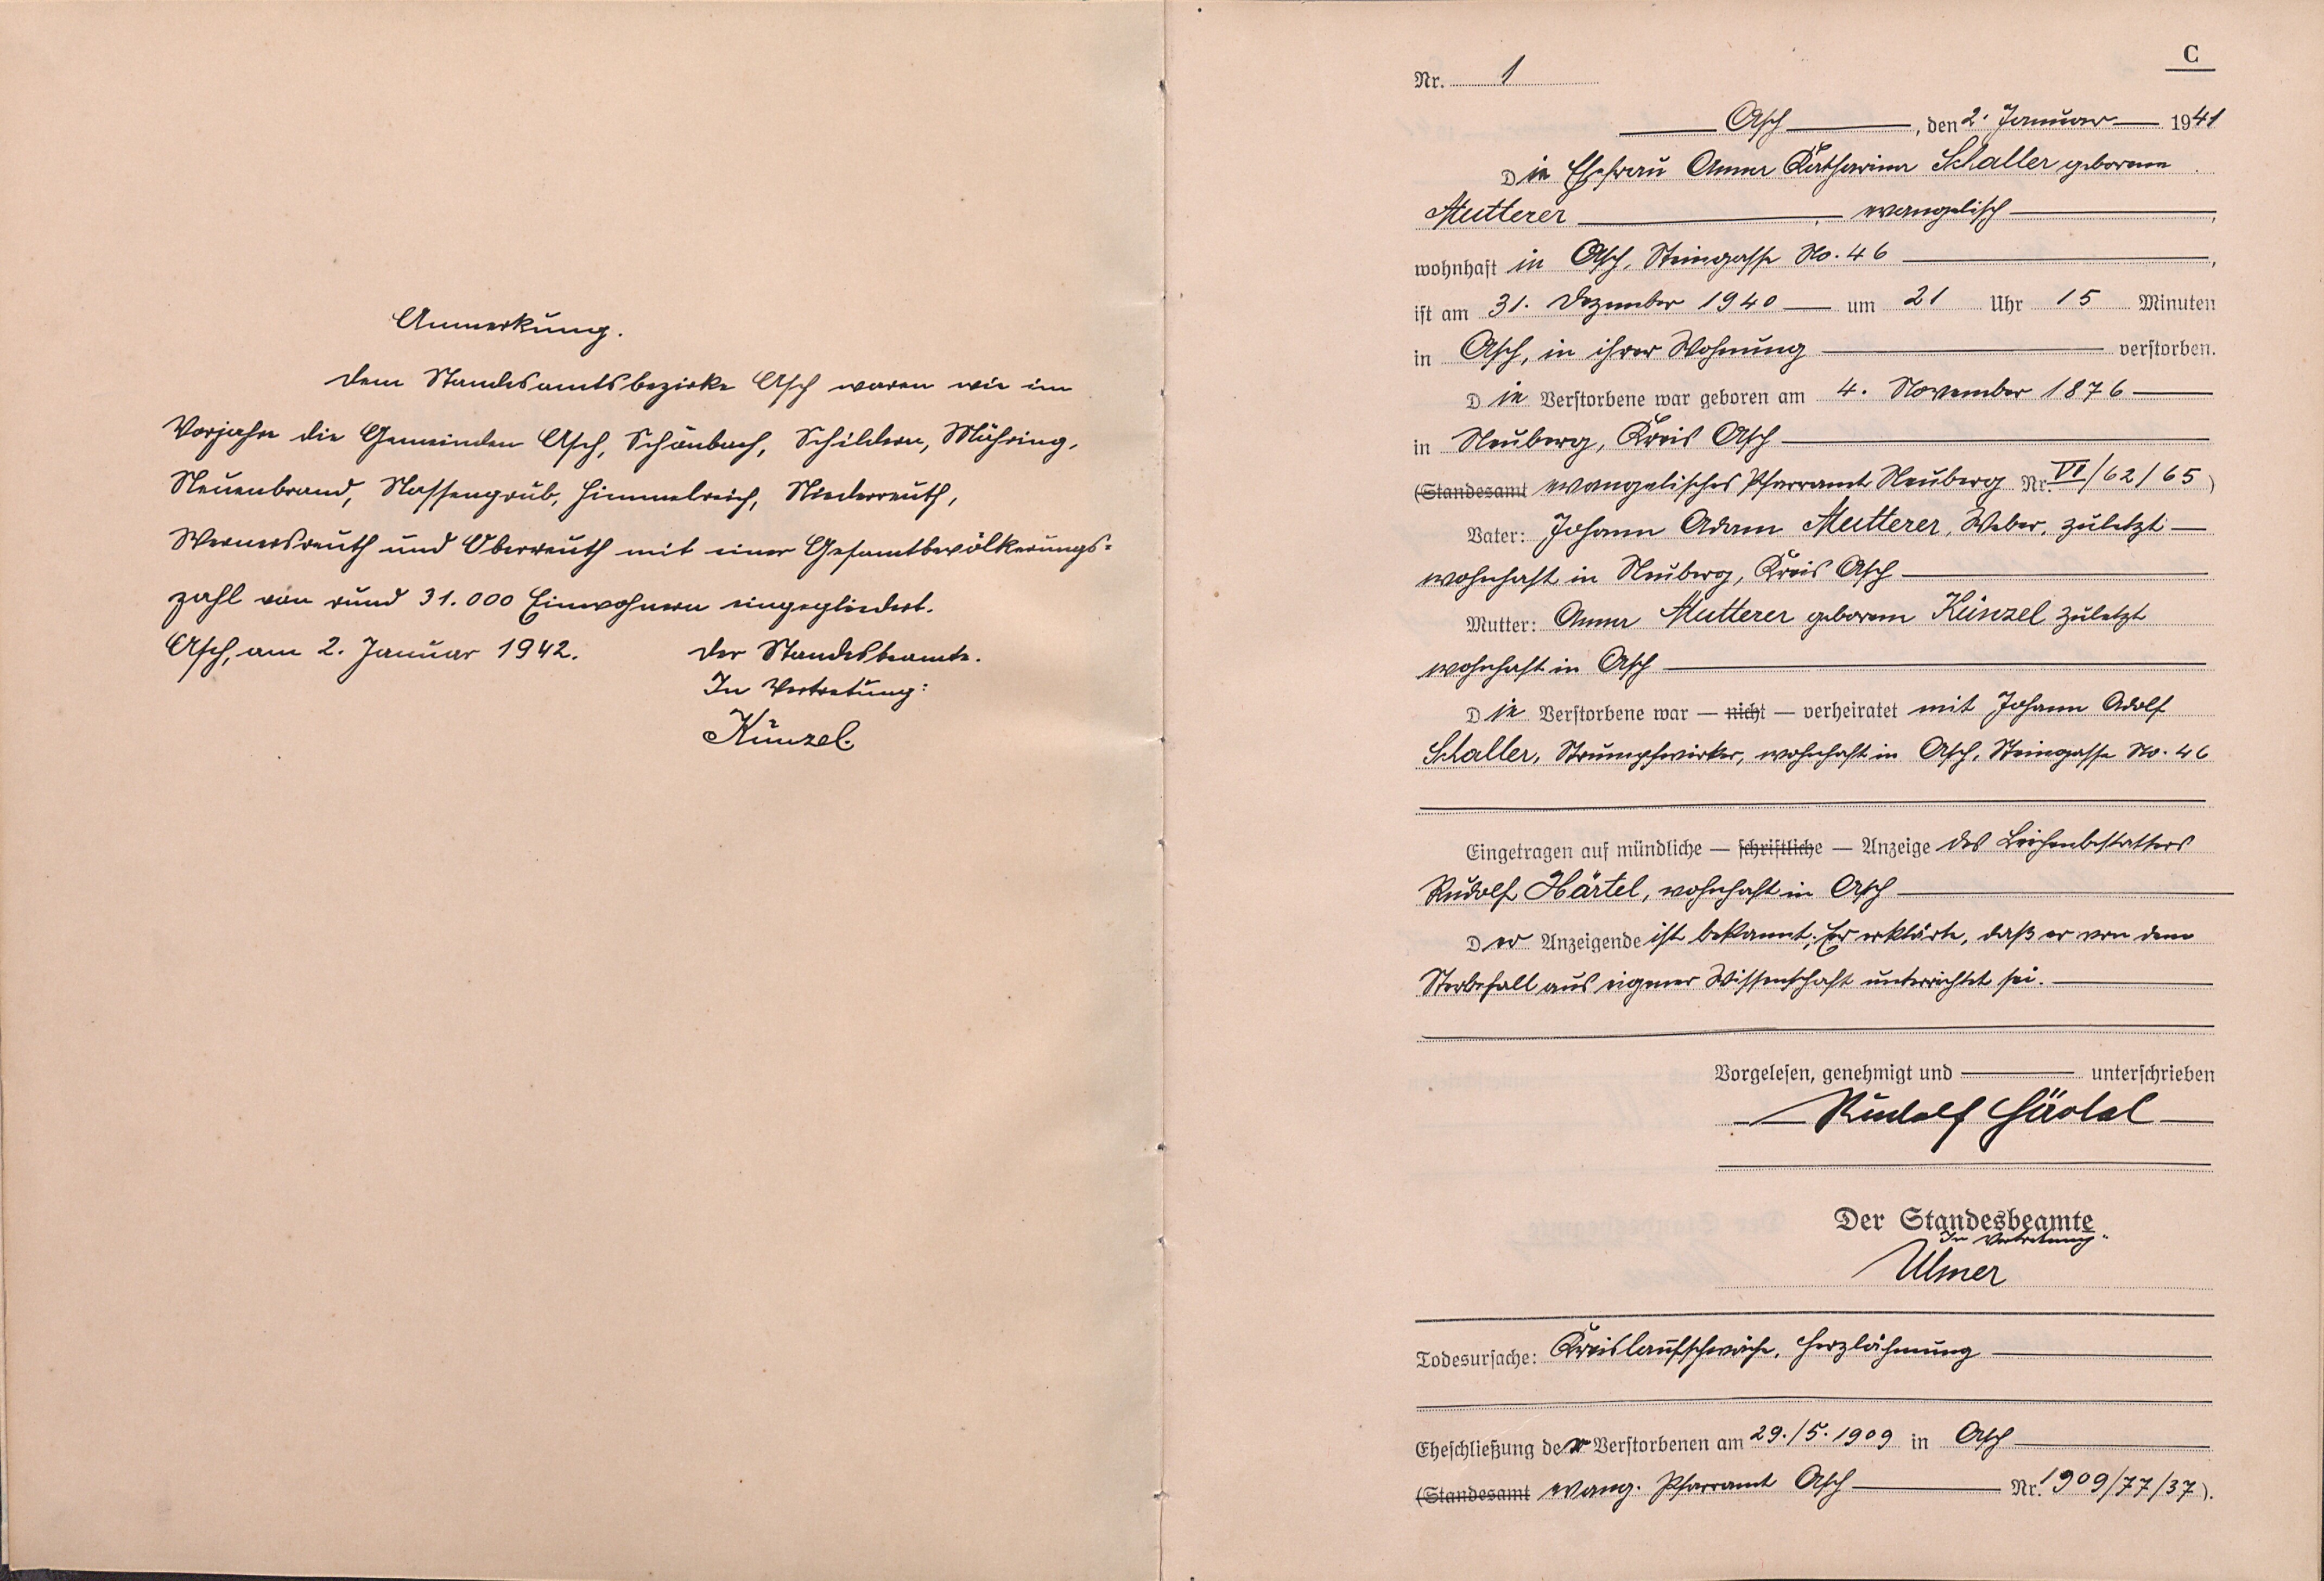 Anmerkung.
Dem Standesamtsbezirke Asch waren wie im
Vorjahre die Gemeinden Asch, Schönbach, Schildern, Mähring,
Neuenbrand, Nassengrub, Himmelreich, Niederreuth,
Wernersreuth und Oberreuth mit einer Gesamtbevölkerungs-
zahl von rund 31.000 Einwohnern eingegliedert.
Asch, am 2. Januar 1942. Der Standesbeamte.
In Vertretung:
Künzel.
C
Nr. 1
Asch, den 2. Januar 1941
Die Ehefrau Anna Katharina Schaller geborene
Mutterer, evangelisch,
wohnhaft in Asch, Steingasse No. 46,
ist am 31. Dezember 1940 um 21 Uhr 15 Minuten
in Asch, in ihrer Wohnung verstorben.
Die Verstorbene war geboren am 4. November 1876
in Neuberg, Kreis Asch
(Standesamt evangelisches Pfarramt Neuberg Nr. VI/62/65)
Vater: Johann Adam Mutterer, Weber, zuletzt
wohnhaft in Neuberg, Kreis Asch
Mutter: Anna Mutterer geborene Künzel zuletzt
wohnhaft in Asch
Die Verstorbene war — nicht — verheiratet mit Johann Adolf
Schaller, Strumpfwirker, wohnhaft in Asch, Steingasse No. 46
Eingetragen auf mündliche — schriftliche — Anzeige des Leichenbestatters
Rudolf Härtel, wohnhaft in Asch
Der Anzeigende ist bekannt. Er erklärte, daß er von dem
Sterbefall aus eigener Wissenschaft unterrichtet sei.
Vorgelesen, genehmigt und unterschrieben
Rudolf Härtel
Der Standesbeamte
In Vertretung:
Ulmer
Todesursache: Kreislaufschwäche, Herzlähmung
Eheschließung der Verstorbenen am 29./5. 1909 in Asch
(Standesamt evang. Pfarramt Asch Nr. 1909/77/37).